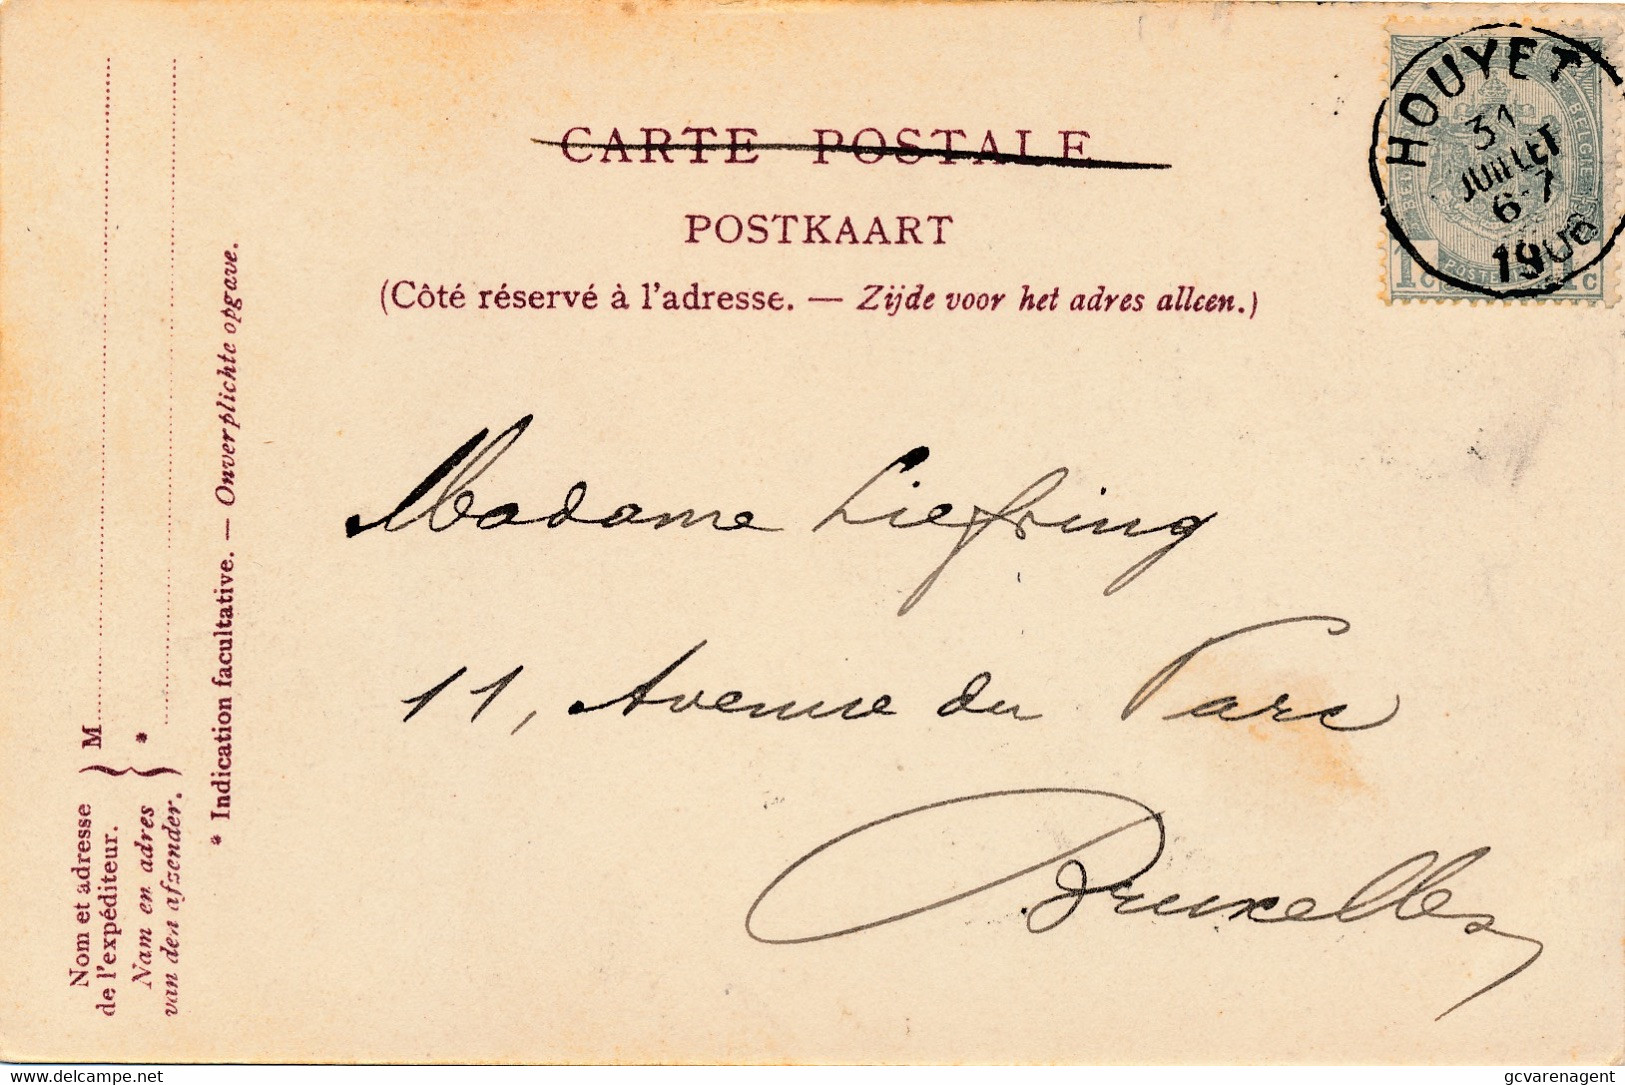 CARTE POSTALE
POSTKAART
(Côté réservé à l'adresse. — Zijde voor het adres alleen.)
HOUYET
31
JUILLET
6-7
BELGIE
1c
1c
Madame Liefring
11, Avenue du Parc
Bruxelles
Nom et adresse
de l'expéditeur.
M
Nam en adres
van den afzender.
*
* Indication facultative. — Onverplichte opgave.
delcampe.net
gcvarenagent